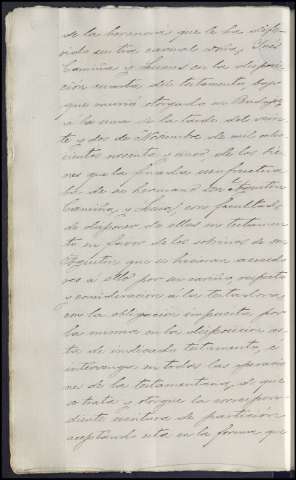 de la herencia que le ha
su tia carnal doña Inés
Camiña y en la disposi-
ción cuarta del testamento, bajo
que murió otorgado en
a la una de la tarde del vein-
te y dos de Noviembre de mil ocho-
cientos noventa y uno, de los bie-
nes que la finada usufructua-
ba de su hermano Don Agustin
Camiña y con facultad
de disponer de ellos en testamen-
to en favor de los sobrinos de
Agustin que se hicieran acreedo-
res á ello por su cariño, respeto
y consideracion á la testadora,
con la obligacion impuesta por
la misma en la disposicion
ta de indicado testamento, e
intervenga en todas las operacio-
nes de la testamentaria de que
se trata y otorgue la correspon-
diente escritura de particion
aceptando esta en la forma que